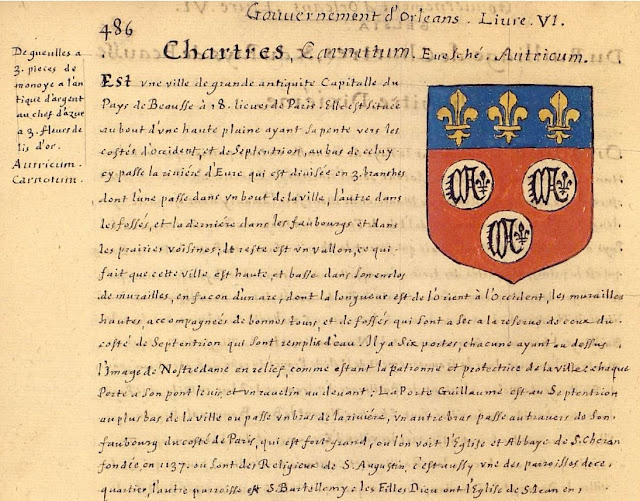 Gouvernement d'Orleans. Livre. VI.
486
Chartres. Carnutum. Euesché. Autricum.
De gueulles a
3. pieces de
monoye a l'an
tique d'argent
au chef d'azur
a 3. fleurs de
lis d'or.
Autricum.
Carnotum.
Est vne ville de grande antiquite Capitalle du
Pays de Beausse à 18. lieues de Paris. Elle est sitüée
au bout d'vne haute plaine ayant sa pente vers les
costés d'Occident, et de Septentrion, au bas de celuy
cy passe la riuiére d'Eure qui est diuisée en 3. branches
dont l'une passe dans vn bout de la ville, l'autre dans
les fossés, et la derniére dans les faubourgs et dans
les prairies voisines; le reste est vn vallon, ce qui
fait que cette ville est haute, et basse dans son enclos
de murailles, en façon d'un arc, dont la longueur est de l'Orient à l'Occident, les murailles
hautes, accompagnées de bonnes tours, et de fossés qui sont a sec a la reserue de ceux du
costé de Septentrion qui sont remplis d'eau. Il y a Six portes, chacune ayant au dessus
l'Image de Nostredame en relief, comme estant la patronne et protectrice de la ville: chaque
Porte a son pont leuis, et vn rauelin au deuant: La Porte Guillaume est au Septentrion
au plus bas de la ville ou passe vn bras de la riuiére, vn autre bras passe au trauers de son
faubourg du costé de Paris, qui est fort grand, ou l'on voit l'Eglise et Abbaye de S. Cheran
fondée, en 1137. ou sont des Religieux de St. Augustin, c'est aussy vne des parroisses de ce
quartier, l'autre parroisse est S. Bartellemy: les Filles Dieu ont l'Eglise de S. Jean en